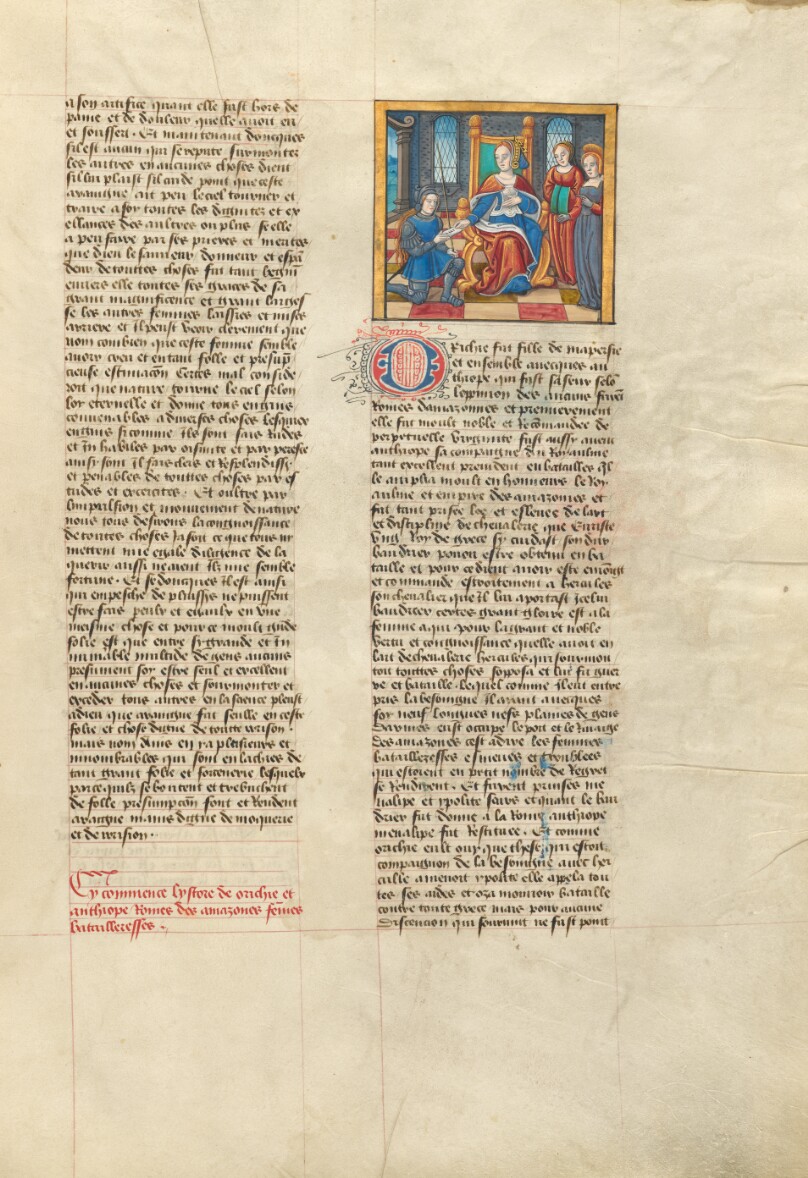 a son artifice quant elle fust hors de
paine et de douleur quelle avoit en
et souffert . Et maintenant doncques
sil est aucun qui se repute surmonter
les autres en aucunes choses dient
sil luy plaist sil cuide point que ceste
araingne ait peu le ciel tourner et
traire a soy toutes les dignitez et ex
ellances des aultres ou plus se elle
a peu faire par ses prieres et merites
que dieu le sauveur donneur et espan
deur de touttes choses fut tant begnin
envers elle toutes ses graces de sa
grant magnificence et grant larges
se les autres femmes laissies et mises
arriere et il peust veoir clerement que
nom combien que ceste femme semble
avoir creu et en tant folle et presump
cieuse estimacion Certes mal conside
roit que nature tourne le ciel selon
loy eternelle et donne tous engins
convenables a diverses choses lesquieux
engins si comme ilz sont fais Rudes
et in habiles par oisivte et par peresse
ainsi sont il fais clers et Resplendissans
et penables de touttes choses par es
tudes et excercites . Et oultre par
limpulsion et mouvement de nature
nous tous desirons la congnoissance
de toutes choses ja soit ce que tous ny
mettent mie egale diligence de la
querir aussi ne aient ilz mie semble
fortune . Et se doncques il est ainsi
qui empesche de plusieurs ne puissent
estre fais peulx et egaulx en une
meisme chose et pour ce moult grande
folie est que entre sy grande et In
numable multitude de gens aucuns
presument soy estre seul et excellent
en aucunes choses et sourmonter et
exceder tous autres en la science pleust
a dieu que araingne fut seulle en ceste
folie et chose digne de toutte irrision .
mais nom dame en y a plusieurs et
innombrables qui sont enlachies de
tant grant folie et forcenerie lesquelz
par ce quilz se boutent et trebuchent
de folle presumpcion font et Rendent
araigne mains digne de moquerie
et de irrision .
Cy commence lystore de orichie et
anthiope Romes des amazones femes
bataillereffes .
Orichie fut fille de mapersie
et ensemble avecques an
thiope qui fust sa seur selon
lopinion des aucuns furent
Romes damazonnes et premierement
elle fut moult noble et Recomandee de
perpetuelle virginite fust aussy avec
anthiope sa compaigne du Royaulme
tant excellent president en batailles quil
le amplia moult en honneurs le Roy
aulme et empire des amazones et
fut tant prisee loee et eslevee de lart
et discipline de chevalerie que Euriste
Ung Roy de grece sy cuidast son dur
baudrier pouoir estre obtenu en ba
taille et pour ce dient avoir este enioint
et commande estroitement a hercules
son chevalier que il luy aportast icelui
baudrier certes grant gloire est a la
femme a qui pour la grant et noble
vertu et congnoissance quelle avoit en
lart de chevalerie hercules qui sourmon
toit touttes choses soposa et luy fit guer
re et bataille . lequel comme il eut entre
pris la besoingne il ayant avecques
soy neuf longues nefz plaines de gens
darmes eust occupe le port et le Rivaige
des amazones cest adire les femmes
bataillereffes esmeues et troublees
qui estoient en petit nombre de Regret
se Rendirent . Et furent prinses me
nalipe et ypolite seurs et quant le bau
drier fut donne a la Royne anthiope
menalipe fut Restituee . Et comme
orichie eust ouy que these qui estoit
compaignon de la besoingne avec her
culle amenoit ypolite elle appela tou
tes ses aides et oza mouvoir bataille
contre toute grece mais pour aucune
discencion qui sourvint ne fust point